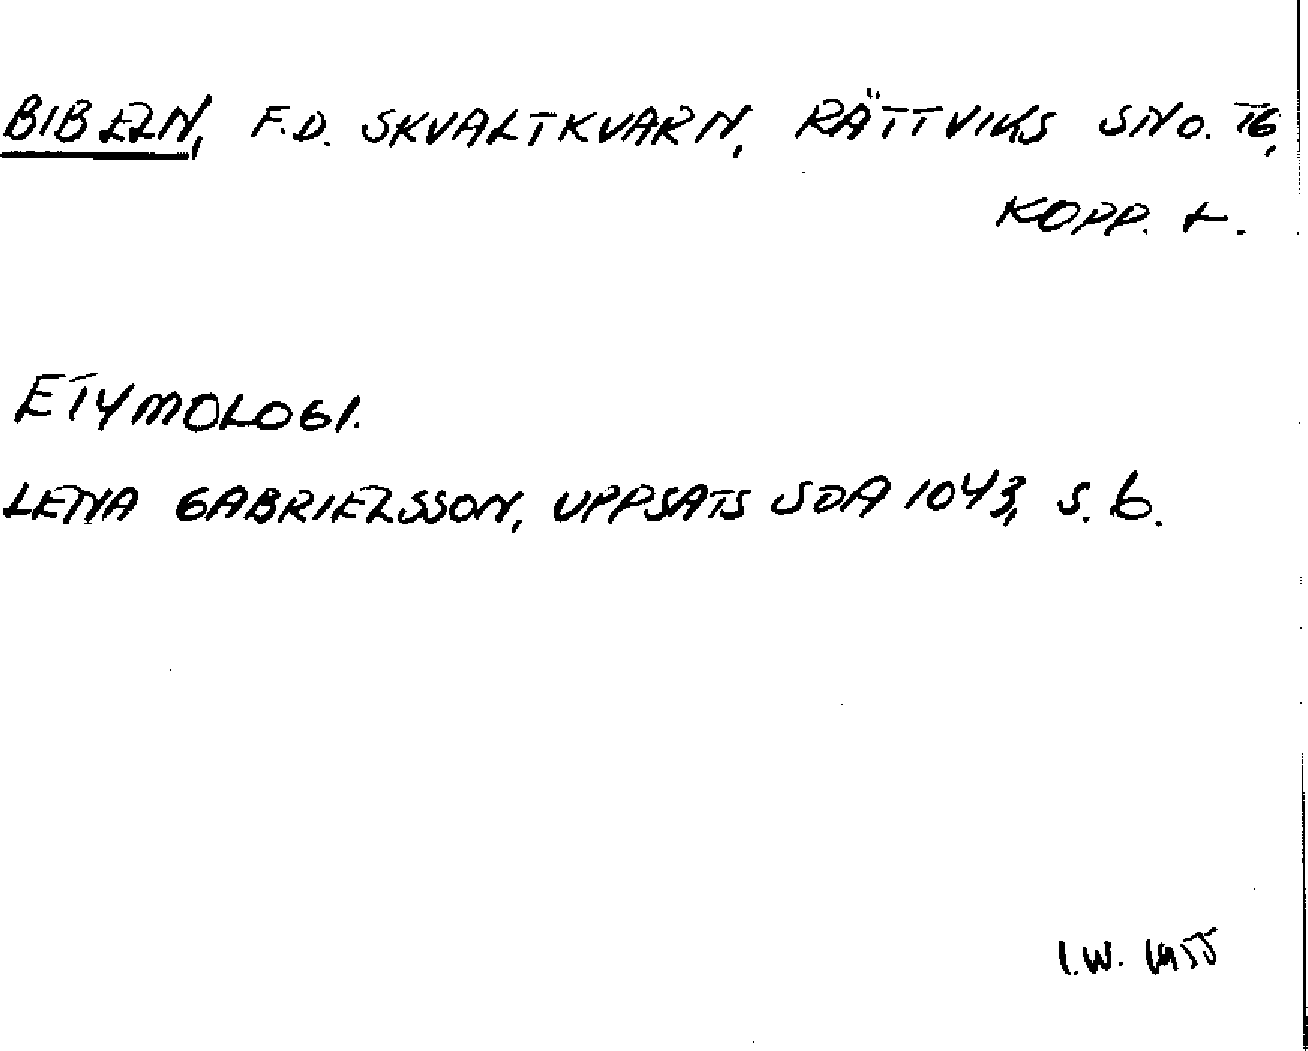 BIBELN, F.D. SKVALTKVARN, RÄTTVIKS SND. TG,
KOPP. L.
ETYMOLOGI.
LENA GABRIELSSON, UPPSATS SOA 1043, S. 6.
I.W. 1955